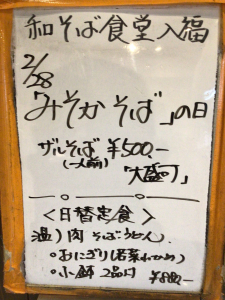 和そば食堂 入福
2/28
「みそか そば」の日
ザルそば ¥500.-
(一人前)
「大盛可」
<日替定食>
温) 肉 そば(うどん)
・おにぎり(若菜わかめ)
・小鉢 2品付
¥880.-